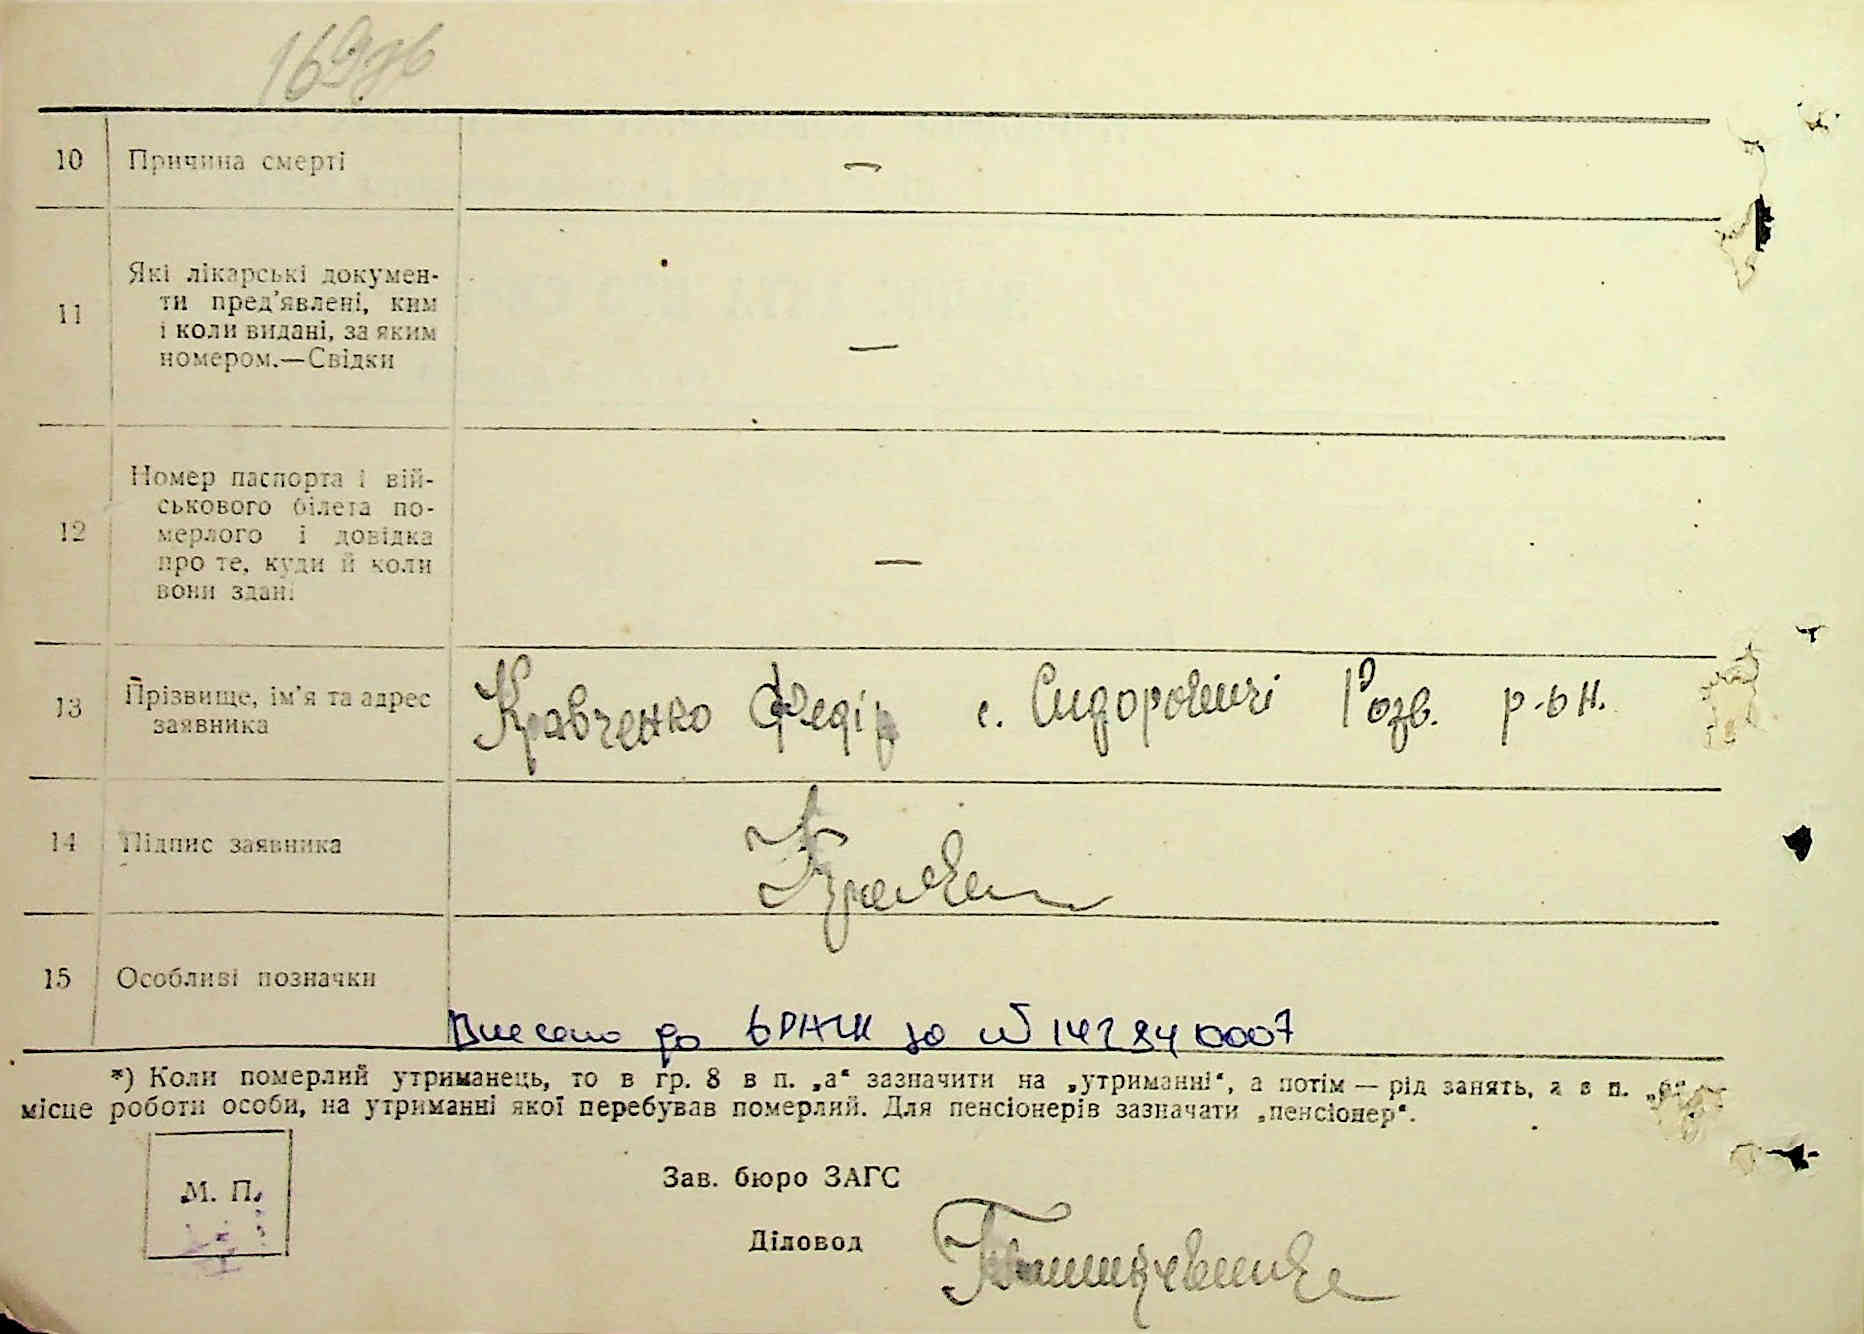 169зв
10 Причина смерті —
11 Які лікарські докумен-
ти пред'явлені, ким
і коли видані, за яким
номером.—Свідки —
12 Номер паспорта і вій-
ськового білета по-
мерлого і довідка
про те, куди й коли
вони здані —
13 Прізвище, ім'я та адрес
заявника
Кравченко Федір с. Сидоровичі Розв. р-он.
14 Підпис заявника
15 Особливі позначки
Внесено до ДРАЦС за №
*) Коли померлий утриманець, то в гр. 8 в п. „а“ зазначити на „утриманні“, а потім — рід занять, а в п.
місце роботи особи, на утриманні якої перебував померлий. Для пенсіонерів зазначати „пенсіонер“.
М. П.
Зав. бюро ЗАГС
Діловод